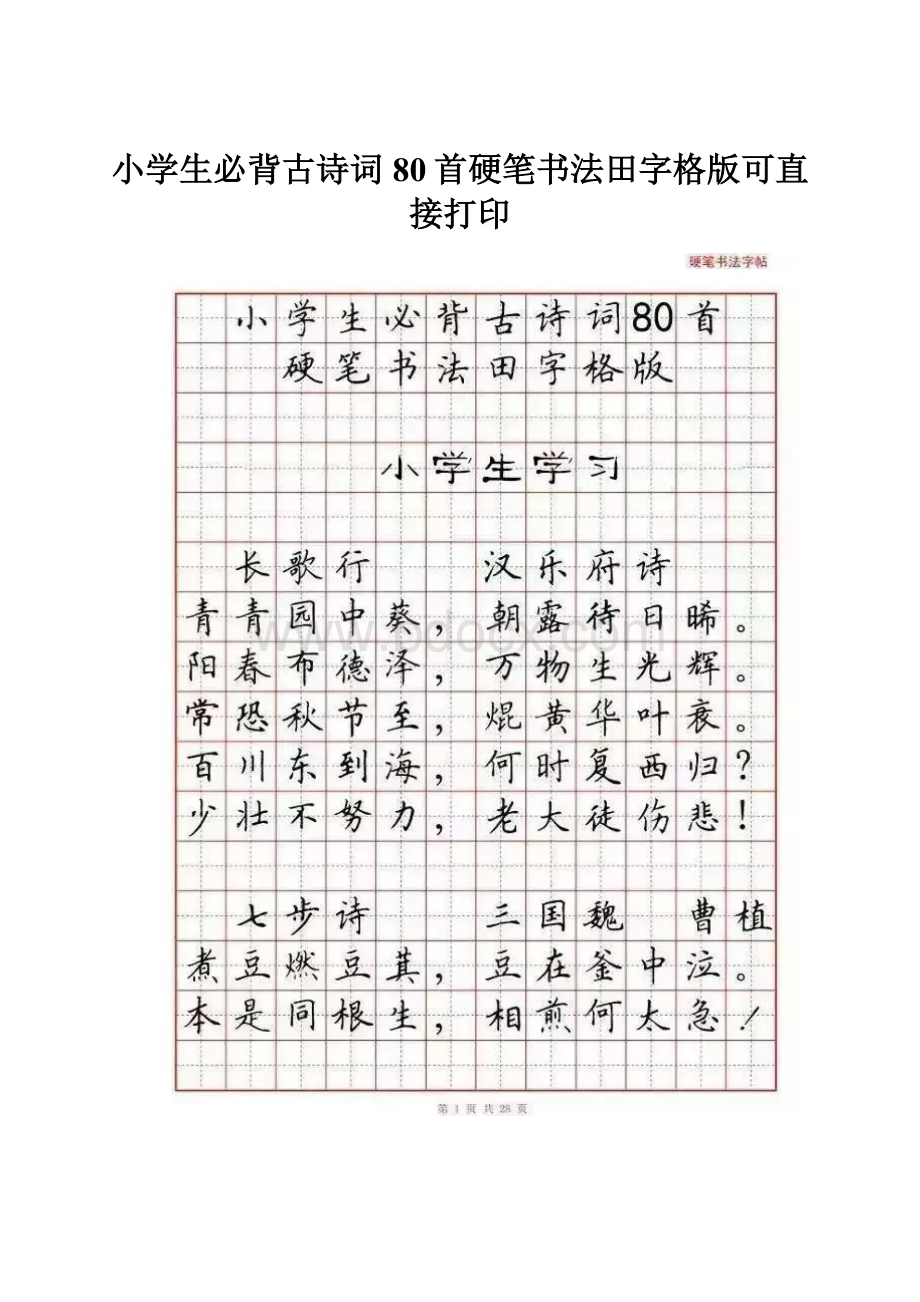 小学生必背古诗词80首硬笔书法田字格版可直
接打印
硬笔书法字帖
小学生必背古诗词80首
硬笔书法田字格版
小学生学习
长歌行 汉乐府诗
青青园中葵，朝露待日晞。
阳春布德泽，万物生光辉。
常恐秋节至，焜黄华叶衰。
百川东到海，何时复西归？
少壮不努力，老大徒伤悲！
七步诗 三国魏 曹植
煮豆燃豆萁，豆在釜中泣。
本是同根生，相煎何太急！
第 1 页 共 28 页